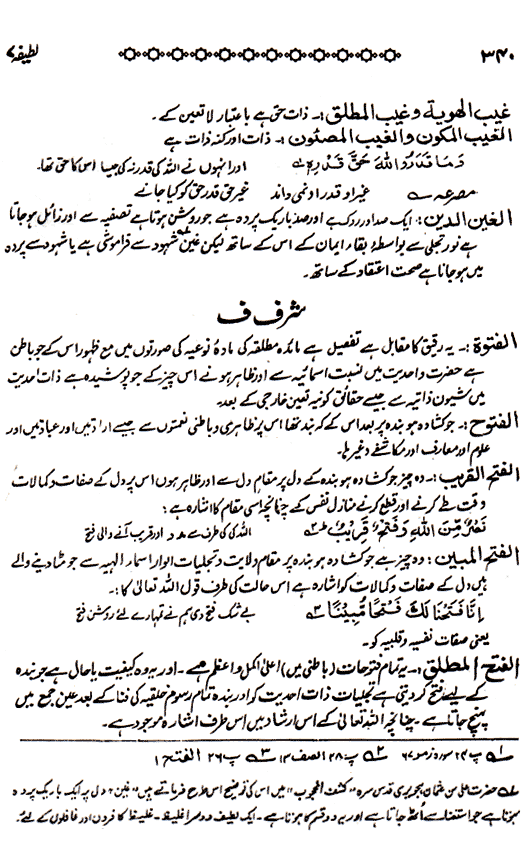 ۳۴۰ لطیفہ ۷
غیب الہویۃ وغیب المطلق :۔ ذات حق ہے باعتبار لا تعین کے۔
الغیب المکون والغیب المصئون :۔ ذات اور کنہ ذات ہے
وَمَا قَدَرُوا اللهَ حَقَّ قَدْرِهٖ لہ اور انہوں نے اللہ کی قدر نہ کی جیسا اس کا حق تھا۔
مصرعہ ؎ غیر او قدر او نمی داند غیر حق قدر حق کو کیا جانے
الغین الدین :۔ ایک صدا اور روک ہے اور صد باریک پردہ ہے جو روشن ہوتا ہے تصفیہ سے اور زائل ہو جاتا
ہے نور تجلی سے بواسطۂ بقاء ایمان کے اس کے ساتھ لیکن غین شہود سے فراموشی ہے یا شہود سے پردہ
میں ہو جانا ہے صحت اعتقاد کے ساتھ۔
شرف ف
الفتوۃ :۔ یہ رقیق کا مقابل ہے تفصیل ہے مائدہ مطلقہ کی مادۂ نوعیہ کی صورتوں میں مع ظہور اس کے جو باطن
ہے حضرت واحدیت میں نسبت اسمائیہ سے اور ظاہر ہونے اس چیز کے جو پوشیدہ ہے ذات احدیت
میں شیون ذاتیہ سے جیسے حقائق کونیہ تعین خارجی کے بعد۔
الفتوح :۔ جو کشادہ ہو بندہ پر بعد اس کے کہ بند تھا اس پر ظاہری و باطنی نعمتوں سے جیسے ارادتیں اور عبادتیں اور
علوم اور معارف اور مکاشفے وغیرہا۔
الفتح القریب :۔ وہ چیز جو کشادہ ہو بندہ کے دل پر مقام دل سے اور ظاہر ہوں اس پر دل کے صفات و کمالات
وقت طے کرنے اور قطع کرنے منازل نفس کے چنانچہ اسی مقام کا اشارہ ہے :
نَصْرٌ مِّنَ اللهِ وَفَتْحٌ قَرِيْبٌ ط ۲ اللہ کی طرف سے مدد اور قریب آنے والی فتح
الفتح المبین :۔ وہ چیز ہے جو کشادہ ہو بندہ پر مقام ولایت و تجلیات انوار اسماء الہیہ سے جو مٹا دینے والے
ہیں دل کے صفات و کمالات کو اشارہ ہے اس حالت کی طرف قول اللہ تعالیٰ کا :۔
اِنَّا فَتَحْنَا لَكَ فَتْحًا مُّبِيْنًا ۳ بے شک فتح دی ہم نے تمہارے لئے روشن فتح
یعنی صفات نفسیہ و قلبیہ کو۔
الفتح المطلق :۔ یہ تمام فتوحات (باطنی میں) اعلیٰ اکمل و اعظم ہے۔ اور یہ وہ کیفیت یا حال ہے جو بندہ
کے لیے فتح کر دیتی ہے تجلیات ذات احدیت کو اور بندہ تمام رسوم خلقیہ کی فنا کے بعد عین جمع میں
پہنچ جاتا ہے۔ چنانچہ اللہ تعالیٰ کے اس ارشاد میں اس طرف اشارہ موجود ہے۔
۱ پ ۲۴ سورہ زمر ۶۷ ۲ پ ۲۸ الصف ۱۳ ۳ پ ۲۶ الفتح ۱
؎ حضرت علی بن عثمان ہجویری قدس سرہ "کشف المحجوب" میں اس کی توضیح اس طرح فرماتے ہیں "غین" دل پر ایک باریک پردہ
ہوتا ہے جو استغفار سے اُٹھ جاتا ہے اور یہ دو قسم کا ہوتا ہے۔ ایک لطیف دوسرا غلیظ۔ غلیظ کافروں اور غافلوں کے لئے۔